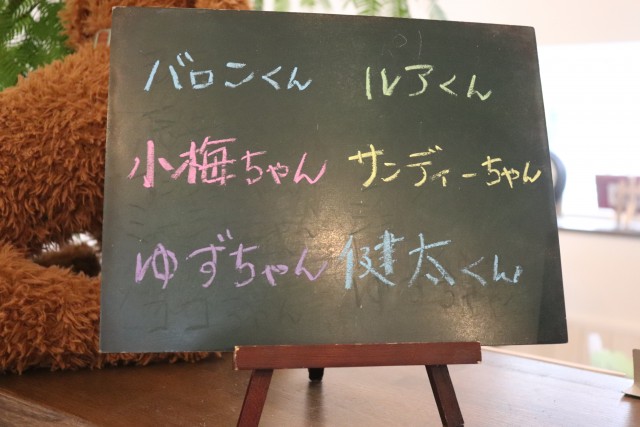 バロンくん ルアくん
小梅ちゃん サンディーちゃん
ゆずちゃん 健太くん